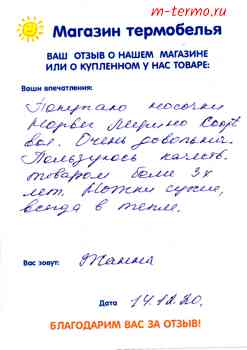 m-termo.ru
Магазин термобелья
ВАШ ОТЗЫВ О НАШЕМ МАГАЗИНЕ
ИЛИ О КУПЛЕННОМ У НАС ТОВАРЕ:
Ваши впечатления:
Покупаю носочки
Норвег Мерино
вые. Очень довольны.
Пользуюсь качеств.
товаром боле 3х
лет. Ножки сухие,
всегда в тепле.
Вас зовут: Жанна
Дата 14.12.20.
БЛАГОДАРИМ ВАС ЗА ОТЗЫВ!